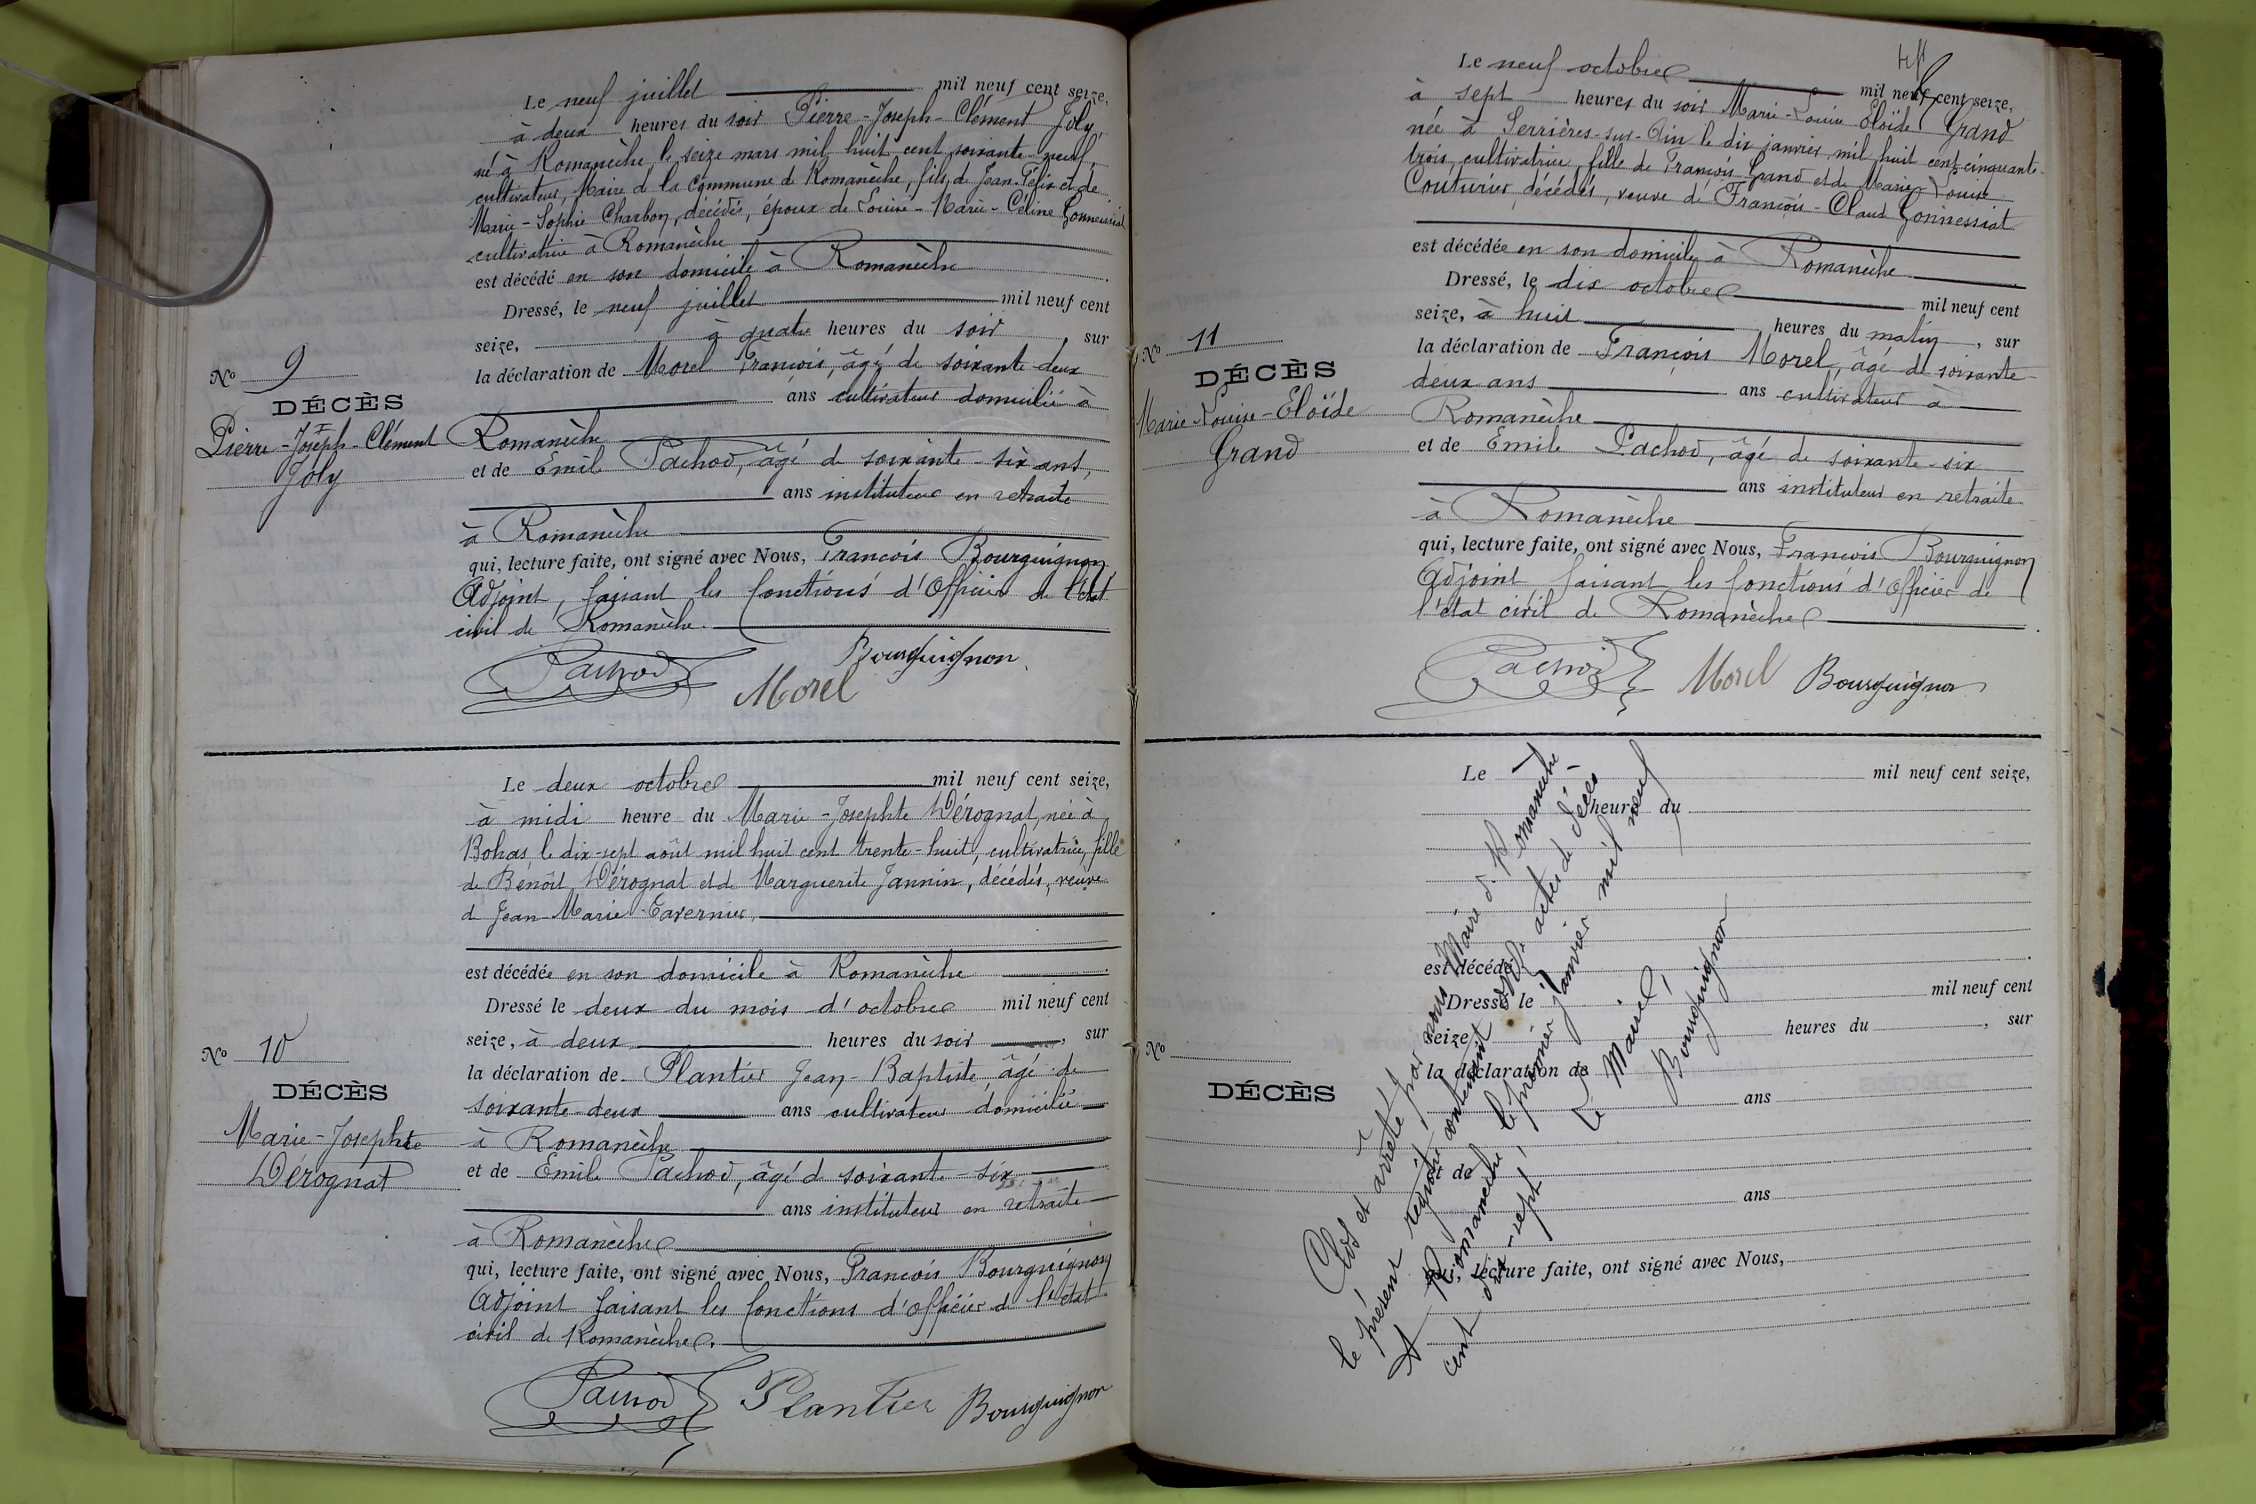 Le neuf juillet mil neuf cent seize,
à deux heures du soir Pierre-Joseph-Clément Joly,
né à Romanèche, le seize mars mil huit cent soixante-neuf,
cultivateur, Maire de la Commune de Romanèche, fils de Jean-Félix et de
Marie-Sophie Charbon, décédés, époux de Louise-Marie-Céline Gonnessiat
cultivatrice à Romanèche
est décédé en son domicile à Romanèche
Dressé, le neuf juillet mil neuf cent
seize, à quatre heures du soir, sur
la déclaration de Morel François, âgé de soixante deux
ans cultivateur domicilié à
Romanèche
et de Emile Pachod, âgé de soixante-six ans,
ans instituteur en retraite
à Romanèche
qui, lecture faite, ont signé avec Nous, François Bourguignon
Adjoint, faisant les fonctions d'Officier de l'état
civil de Romanèche.
Pachod Morel Bourguignon
No 9
DÉCÈS
Pierre-Joseph-Clément
Joly
Le deux octobre mil neuf cent seize,
à midi heure du Marie-Josephte Dérognat, née à
Bohas, le dix-sept août mil huit cent trente-huit, cultivatrice, fille
de Bénoît Dérognat et de Marguerite Jannin, décédés, veuve
de Jean-Marie Tavernier,
est décédée en son domicile à Romanèche
Dressé le deux du mois d'octobre mil neuf cent
seize, à deux heures du soir, sur
la déclaration de Plantier Jean-Baptiste, âgé de
soixante-deux ans cultivateur domicilié
à Romanèche
et de Emile Pachod, âgé de soixante-six
ans instituteur en retraite
à Romanèche
qui, lecture faite, ont signé avec Nous, François Bourguignon
Adjoint faisant les fonctions d'officier de l'état
civil de Romanèche.
Pachod Plantier Bourguignon
No 10
DÉCÈS
Marie-Josephte
Dérognat
Le neuf octobre mil neuf cent seize,
à sept heures du soir Marie-Louise Eloïde Grand
née à Serrières-sur-Ain le dix janvier mil huit cent cinquante-
trois, cultivatrice, fille de François Grand et de Marie-Louise
Couturier, décédés, veuve de François-Claud Gonnessiat
est décédée en son domicile à Romanèche
Dressé, le dix octobre mil neuf cent
seize, à huit heures du matin, sur
la déclaration de François Morel, âgé de soixante-
deux ans ans cultivateur à
Romanèche
et de Emile Pachod, âgé de soixante-six
ans instituteur en retraite
à Romanèche
qui, lecture faite, ont signé avec Nous, François Bourguignon
Adjoint faisant les fonctions d'officier de
l'état civil de Romanèche
Pachod Morel Bourguignon
No 11
DÉCÈS
Marie-Louise-Eloïde
Grand
Le mil neuf cent seize,
heures du
est décédé
Dressé le mil neuf cent
seize, heures du , sur
la déclaration de
ans
et de
ans
qui, lecture faite, ont signé avec Nous,
No
DÉCÈS
Clos et arrêté par nous Maire de Romanèche
le présent registre contenant onze actes de décès
A Romanèche le premier janvier mil neuf
cent dix-sept
Le Maire,
Bourguignon